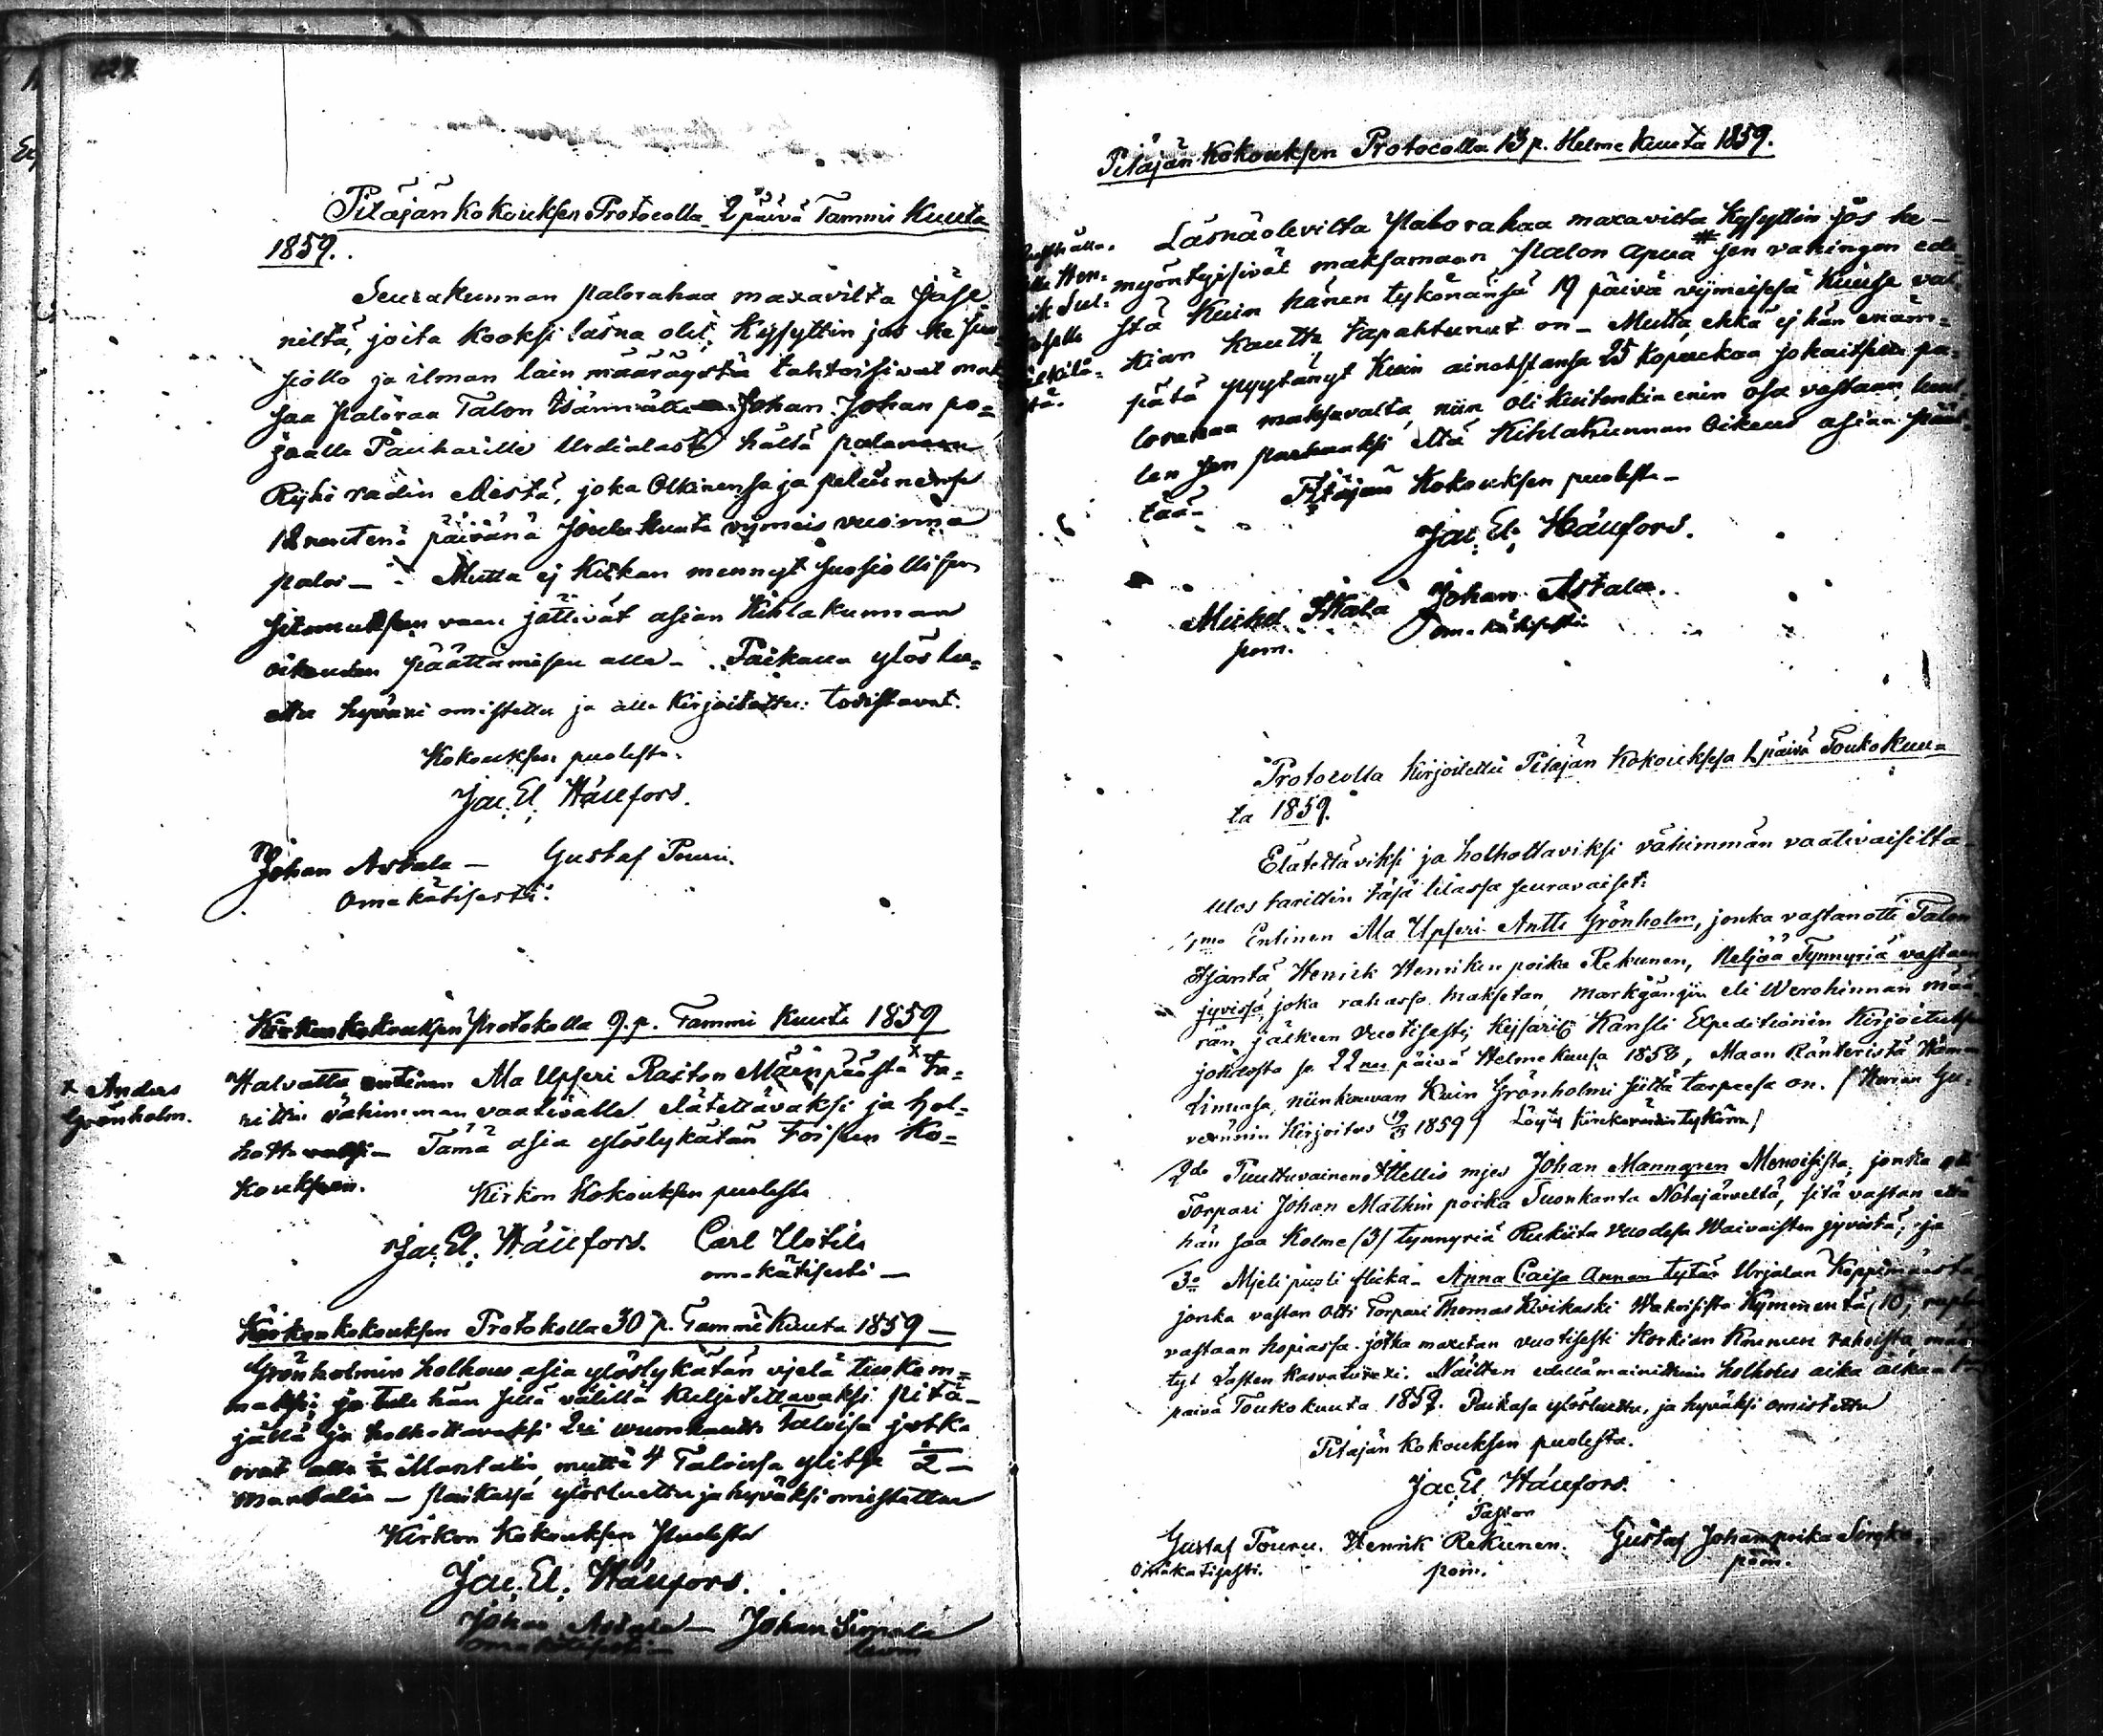 Pitäjän Kokouksen Protocolla 2 päivä Tammi Kuuta
1859.
Seurakunnan palorahaa maxavilta jäse-
niltä, joita kooksi läsna olit, kysyttin jos he suo-
siolla ja ilman lain määräystä tahtoisivat mak
saa paloraa Talon Isännälle Johan Johan po=
jaalle Pauharille Urdialasti hältä
Rijhi vadin Aestä, joka Olkinensa ja
18 nentenä päivänä Joulu Kuuta vijmeis vuonna
paloi — Mutta ej Kukan mennyt suosiollisen
sitomuksen vaan jättivät asian Kihlakunnan
oikeuden päättämisen alle — Paikalla ylös lu=
ettu hyväxi omistettu ja alle Kirjoitettu: todistavat.
Kokouksen puolesta.
Jac. El. Häufors.
Johan Astala — Gustaf Touru.
Omakätisesti.
Kirkon kokouksen Protokolla 9. p. Tammi Kuuta 1859
x Anders
Grönholm.
Halvattu entinen Ala Upseri Raiton Mäenpäästä x ta=
rittin vähimmän vaativalle elätettäväksi ja hol=
hottavaksi — Tämä asia ylöslykätän toiseen Ko=
koukseen.
Kirkon Kokouksen puolesta
Jac. El. Häufors. Carl Uotila
omakätisesti —
Kirkon kokouksen Protokolla 30 p. Tammi Kuuta 1859 —
Grönholmin holhous asia ylöslykätän vjelä tuukem=
maksi; ja tule hän sillä välillä kuljetettavaksi pitä-
jällä ja holhottavaksi 2xi vuorokautta taloisa jotka
ovat alle ½ Mantalin, mutta 4 Taloissa ylitse ½ —
mantalin — paikassa ylösluettu ja hyväksi omistettu
Kirkon Kokouksen Puolesta
Jac. El. Häufors.
Johan Astala — Johan Simola
omakätisesti —
Pitäjän Kokouksen Protocolla 13 p. Helme Kuuta 1859.
Läsnäolevilta Palorahaa maxavilta kysyttin jos he —
myöntyisivät maksamaan Palon apua # sen vahingon ede
stä kuin hänen tykönänsä 19 päivä vijmeisessä Kuusa val
kian kautta tapahtunut on — Mutta, ehkä ej hän enäm=
pätä pyytänyt kuin ainoastansa 25 kopeekaa jokaitselta pa=
lorahaa maksavalta, niin oli kuitenkin enin osa vastaan, luul
len sen parhaaksi että Kihlakunnan Oikeus asian päät=
tää —
Pitäjän Kokouksen puolesta —
Jac. El. Häufors.
Johan Astala.
omakätisesti
Michel
pom.
Protocolla Kirjoitettu Pitäjän Kokouksesa 1 päivä Toukokuu=
ta 1859.
Elätettäviksi ja holhottaviksi vähimmän vaativaiselta
ulos tarittin täsä tilassa seuravaiset:
1mo Entinen Ala Upseri Antti Grönholm, jonka vastanotti Talon
Isäntä Henrik Henrikin poika Rekunen, Neljää Tynnyriä vastaan
jyvissä, joka rahassa maksetan markgångin eli Verohinnan mää
rän jälkeen vuotisesti, Kejsari: Kansli Expeditionin Kirjoituksen
johdosta se 22 nen päivä Helme kuusa 1858, Maan Ränteristä Hämen
linnasa, niinkauvan kuin Grönholmi siitä tarpeesa on. (Herran Gu=
vernörin Kirjoitus 19/3 1859) Löytÿ Kirckoraadin tykönä)
2do Puuttuvainen Mjellis mjes Johan Manngren Menoisista, jonka otti
Torpari Johan Mathin poika Suonkanta Notajärveltä, sitä vastan että
hän saa Kolme (3) tynnyriä Rukiita vuodesa Waivaisten jyvistä, ja
3o Mjeli puoli flicka — Anna Caisa Annan tytär Urjalan
jonka vastan otti Torpari Thomas Kivikoski Kymmentä (10) rupla
vastaan hopiassa, jotka maxetan vuotisesti Korkian Kruunun rahoista,
tyt Lasten kasvatuxexi. Näitten edellämainittuin holhous aika alkaa
päivä Toukokuuta 1859. Paikasa ylösluettu, ja hyväksi omistettu
Pitäjän Kokouksen puolesta.
Jac. El. Häufors.
Pastor
Gustaf Touru. Henrik Rekunen. Gustaf Johanpoika
Omakätisesti. pom. pom.